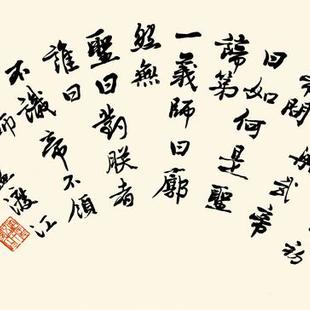 問
曰如何是聖
諦第
一義師曰廓
然無
聖曰對朕者
誰曰
不識帝不領
師遂渡江